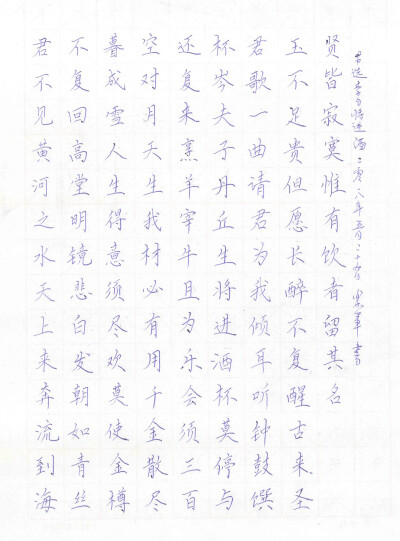 君不见黄河之水天上来奔流到海
不复回高堂明镜悲白发朝如青丝
暮成雪人生得意须尽欢莫使金樽
空对月天生我材必有用千金散尽
还复来烹羊宰牛且为乐会须三百
杯岑夫子丹丘生将进酒杯莫停与
君歌一曲请君为我倾耳听钟鼓馔
玉不足贵但愿长醉不复醒古来圣
贤皆寂寞惟有饮者留其名
选李白将进酒二零一八年五月二十 军书